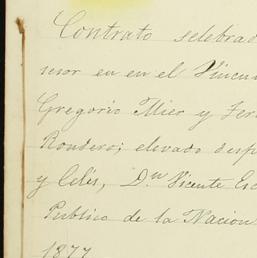 Contrato selebrad
sesor en en el Vincu
Gregorio Mier y Ter
Rondero; elevado desp
y Celis, D.n Vicente Esc
Publico de la Nacion
1877